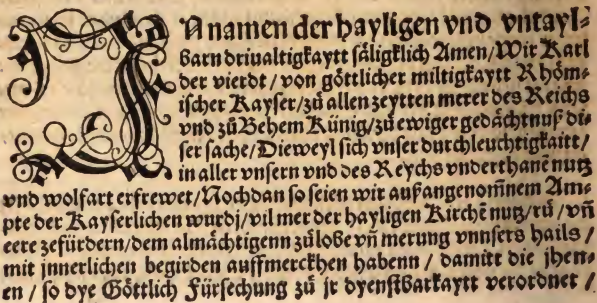 IN namen der hayligen vnd vntayl⸗
barn driualtigkaytt säligklich Amen/Wir Karl
der vierdt/von göttlicher miltigkaytt Rhöm⸗
ischer Kayser/zů allen zeytten merer des Reichs
vnd zů Behem Künig/zů ewiger gedächtnuß di⸗
ser sache/Dieweyl sich vnser durchleuchtigkaitt/
in aller vnsern vnd des Reychs vnderthanē nutz
vnd wolfart erfrewet/Nochdan so seien wir auß angenom̄nem Am⸗
pte der Kayserlichen wurdj/vil mer der hayligen Kirchē nutz/rů/vn̄
eere zefürdern/dem almächtigenn zůlobe vn̄ merung vnnsers hails/
mit jnnerlichen begirden auffmerckhen habenn/damitt die jhen⸗
en/so dye Göttlich Fürsechung zů jr dyenstbarkaytt verordnet/